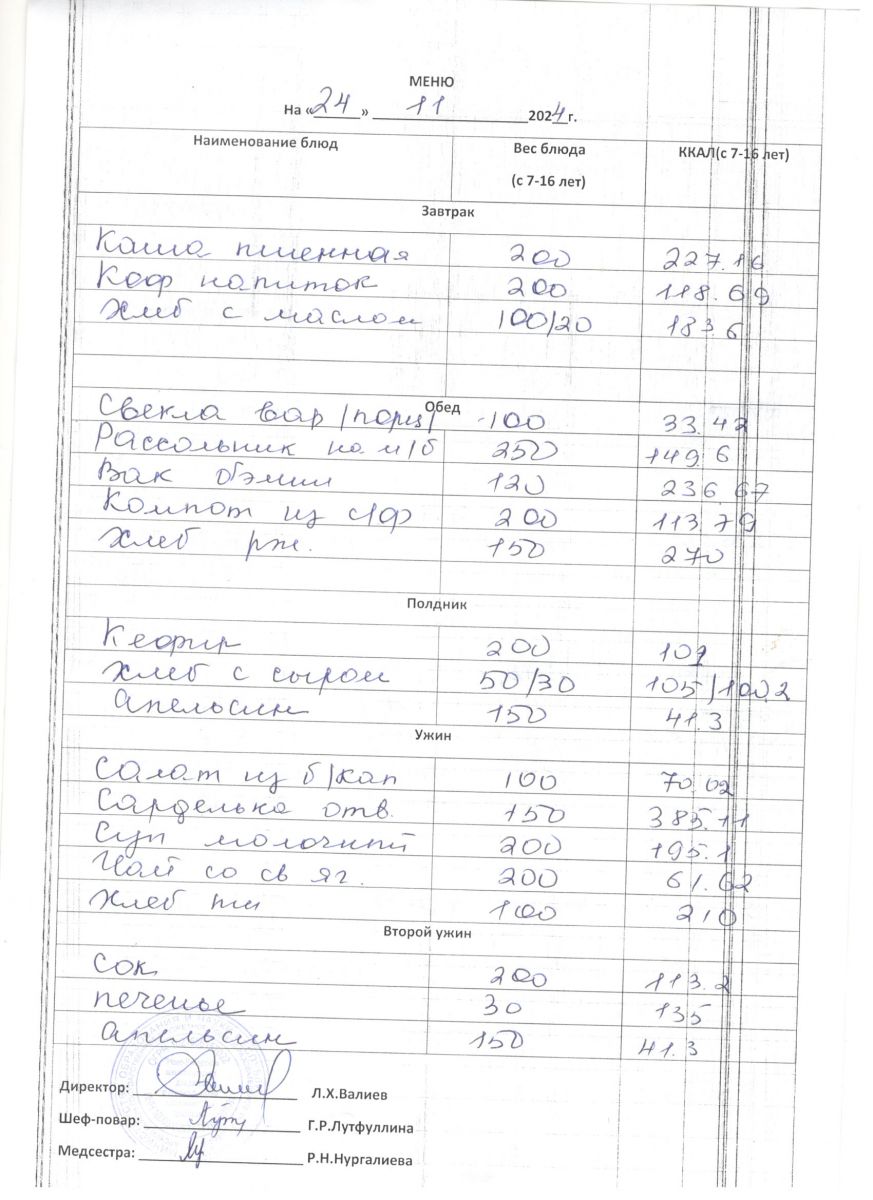 МЕНЮ
На «24» 11 2024г.
Наименование блюд Вес блюда (с 7-16 лет) ККАЛ(с 7-16 лет)
Завтрак
Каша пшенная 200 227.16
Коф напиток 200 118.69
Хлеб с маслом 100/20 183.6
Обед
Свекла вар /порц/ 100 33.42
Рассольник на м/б 250 149.6
Вак бэлиш 120 236.67
Компот из с/ф 200 113.79
Хлеб рж. 150 270
Полдник
Кефир 200 102
Хлеб с сыром 50/30 105/100.2
Апельсин 150 41.3
Ужин
Салат из б/кап 100 70.02
Сарделька отв. 150 385.11
Суп молочный 200 195.1
Чай со св яг. 200 61.62
Хлеб пш 100 210
Второй ужин
Сок 200 113.2
печенье 30 135
Апельсин 150 41.3
Директор: Л.Х.Валиев
Шеф-повар: Г.Р.Лутфуллина
Медсестра: Р.Н.Нургалиева